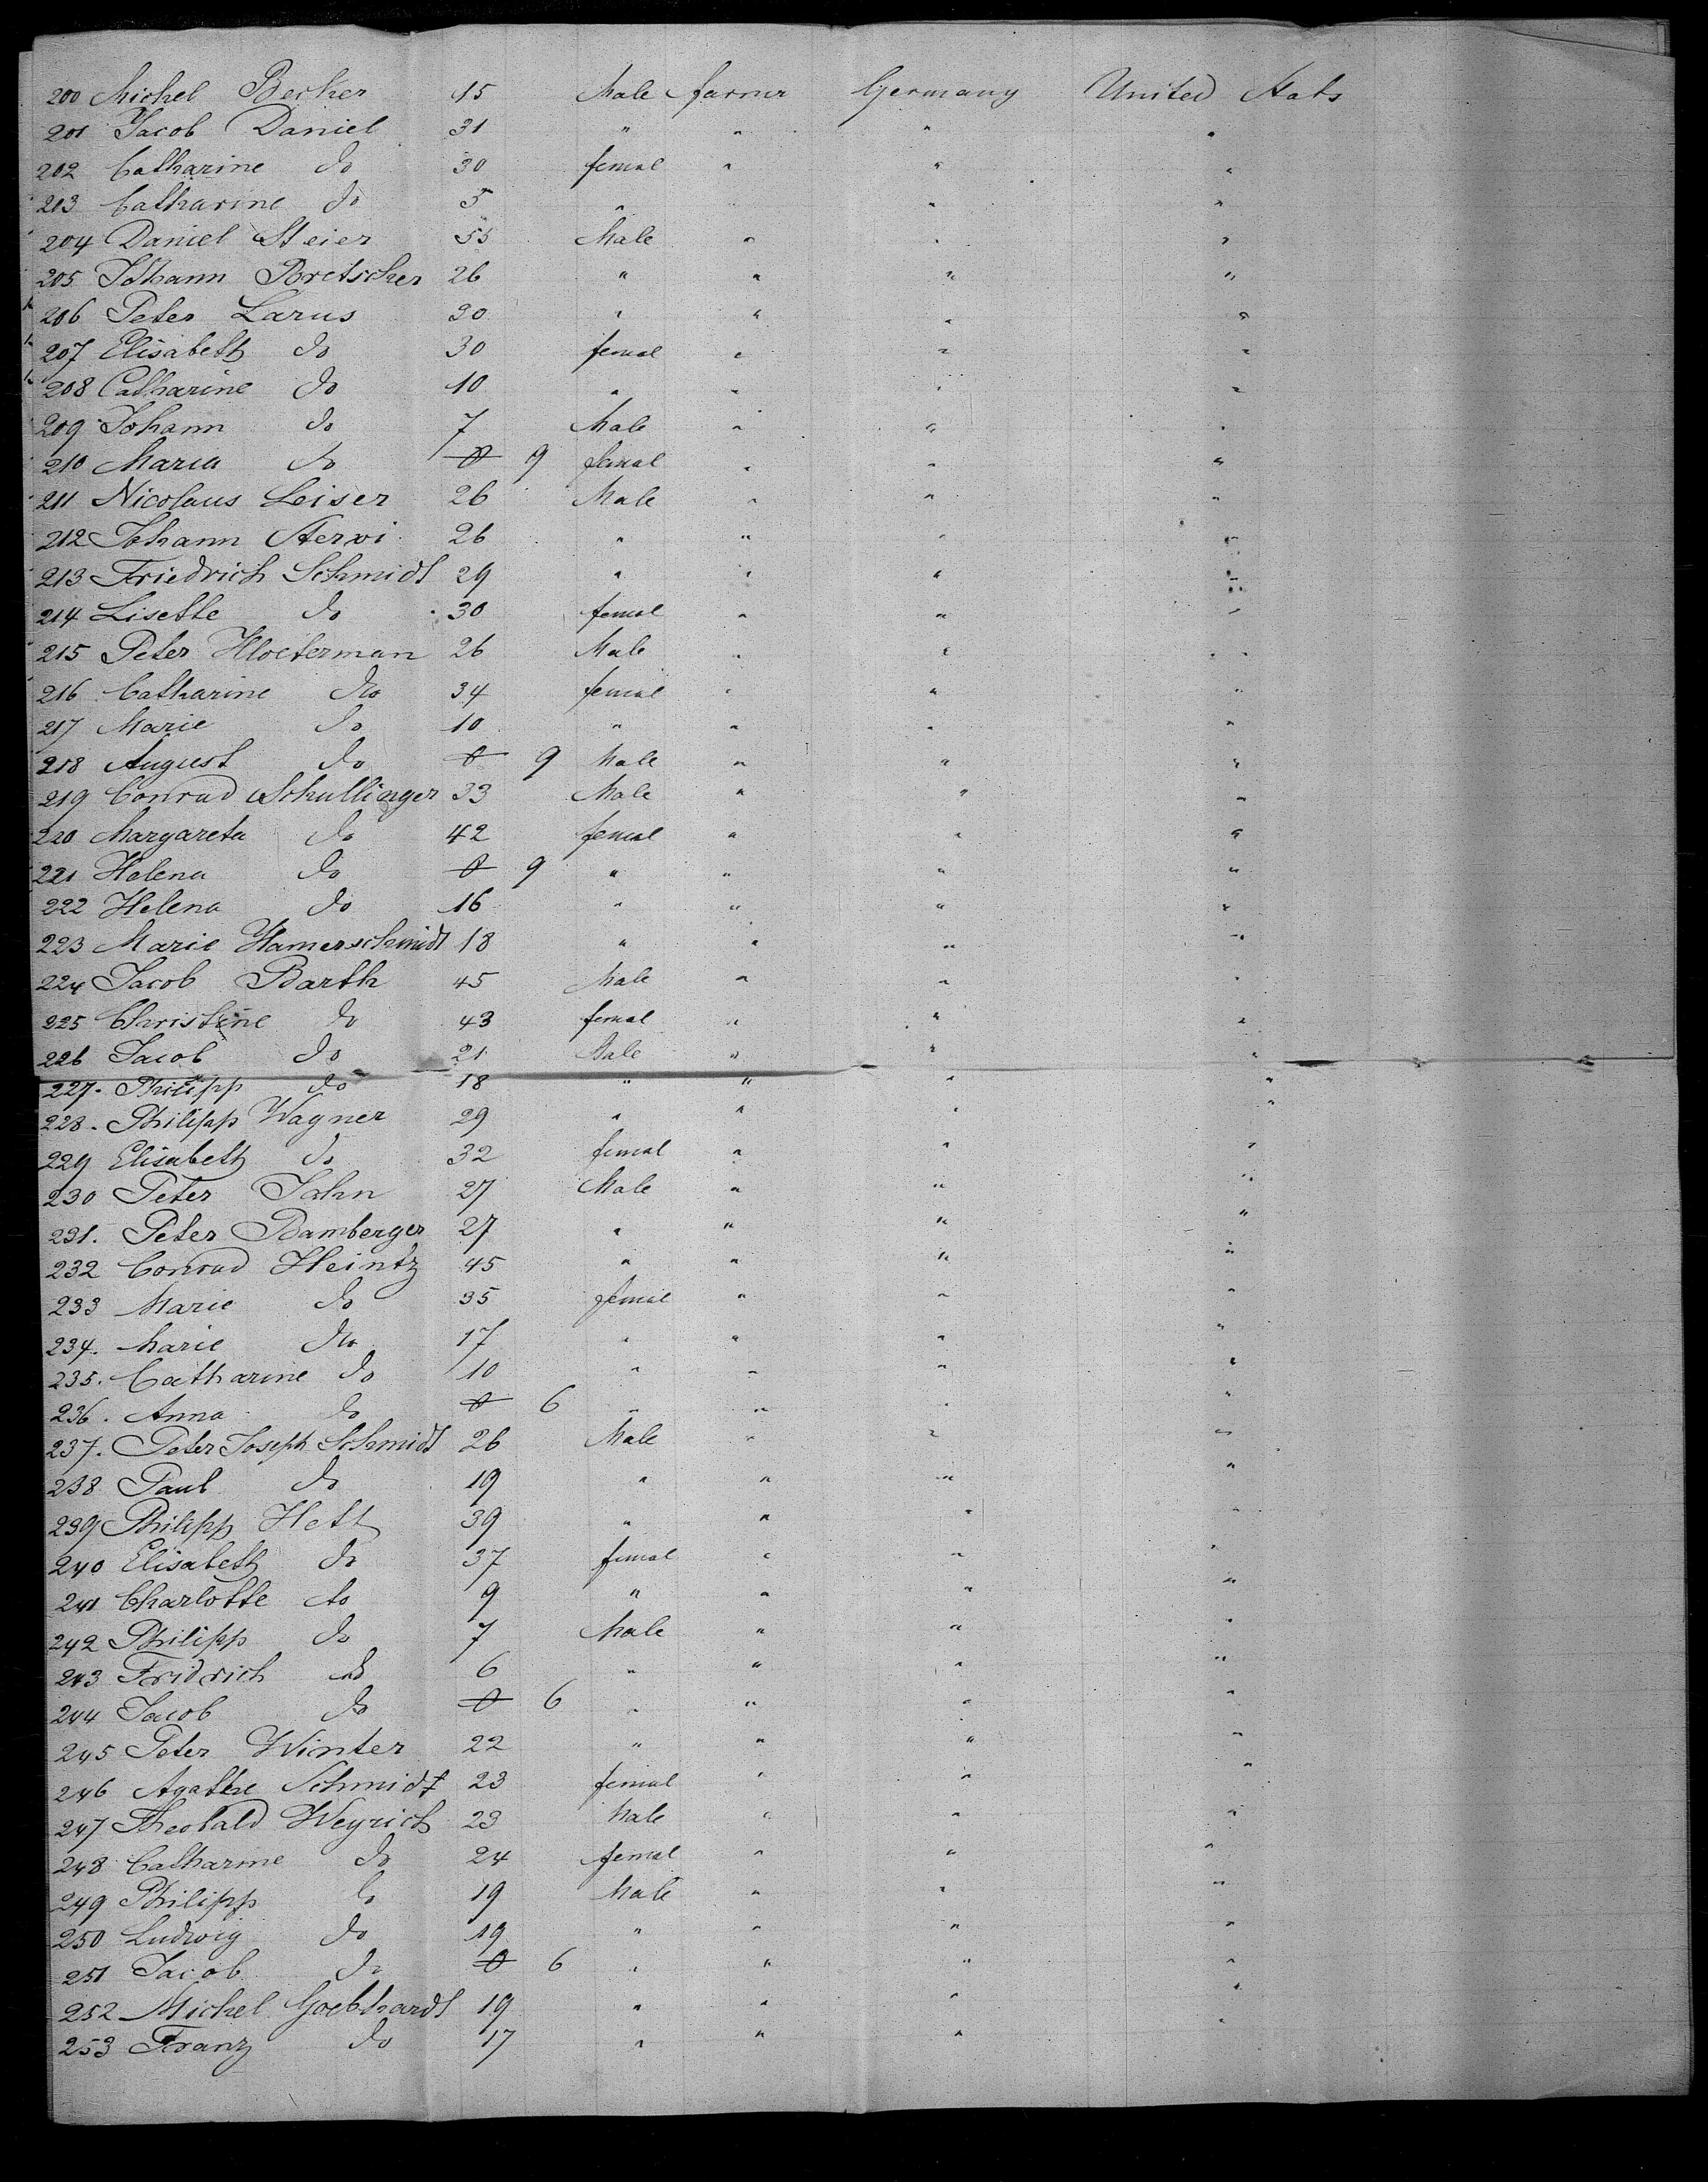 200 Michel Becker 45 Male farmer Germany United Stats
201 Jacob Daniel 31 " " " "
202 Catharine do 30 femal " " "
203 Catharine do 5 " " " "
204 Daniel Steier 55 Male " " "
205 Johann Bretscher 26 " " " "
206 Peter Larus 30 " " " "
207 Elisabeth do 30 femal " " "
208 Catharine do 10 " " " "
209 Johann do 7 Male " " "
210 Maria do 0 9 femal " " "
211 Nicolaus Leiser 26 Male " " "
212 Johann Stervi 26 " " " "
213 Friedrich Schmidt 29 " " " "
214 Lisette do 30 femal " " "
215 Peter Kloeterman 26 Male " " "
216 Catharine do 34 femal " " "
217 Marie do 10 " " " "
218 August do 0 9 Male " " "
219 Conrad Schullinger 33 Male " " "
220 Margareta do 42 femal " " "
221 Helena do 0 9 " " " "
222 Helena do 16 " " " "
223 Marie Hamerschmidt 18 " " " "
224 Jacob Barth 45 Male " " "
225 Christine do 43 femal " " "
226 Jacob do 21 Male " " "
227. Philipp do 18 " " " "
228. Philipp Wagner 29 " " " "
229 Elisabeth do 32 femal " " "
230 Peter Jahn 27 Male " " "
231. Peter Bamberger 27 " " " "
232 Conrad Heintz 45 " " " "
233 Marie do 35 femal " " "
234. Marie do 17 " " " "
235. Catharine do 10 " " " "
236. Anna do 0 6 " " " "
237. Peter Joseph Schmidt 26 Male " " "
238 Paul do 19 " " " "
239 Philipp Hett 39 " " " "
240 Elisabeth do 37 femal " " "
241 Charlotte do 9 " " " "
242 Philipp do 7 Male " " "
243 Fridrich do 6 " " " "
244 Jacob do 0 6 " " " "
245 Peter Winter 22 " " " "
246 Agathe Schmidt 23 femal " " "
247 Theobald Weyrich 23 Male " " "
248 Catharine do 24 femal " " "
249 Philipp do 19 Male " " "
250 Ludwig do 19 " " " "
251 Jacob do 0 6 " " " "
252 Michel Goebhardt 19 " " " "
253 Franz do 17 " " " "